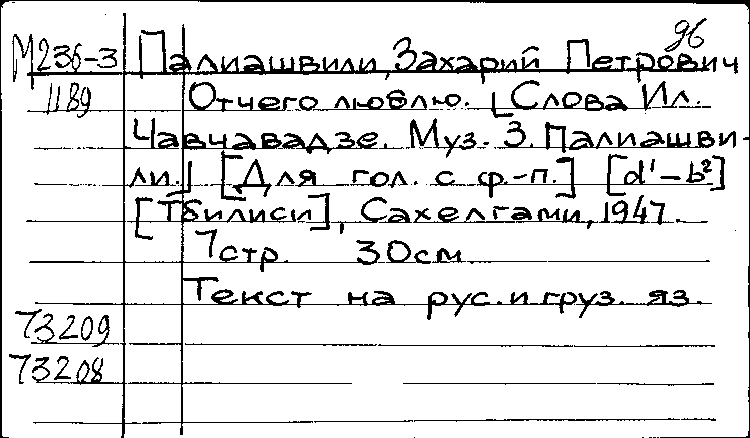 96
М236-3 Палиашвили, Захарий Петрович
1189 Отчего люблю. [Слова Ил.
Чавчавадзе. Муз. З. Палиашви-
ли.] [Для гол. с ф.-п.] [d'-b²]
[Тбилиси], Сахелгами, 1947.
7стр. 30см.
Текст на рус. и груз. яз.
73209
73208